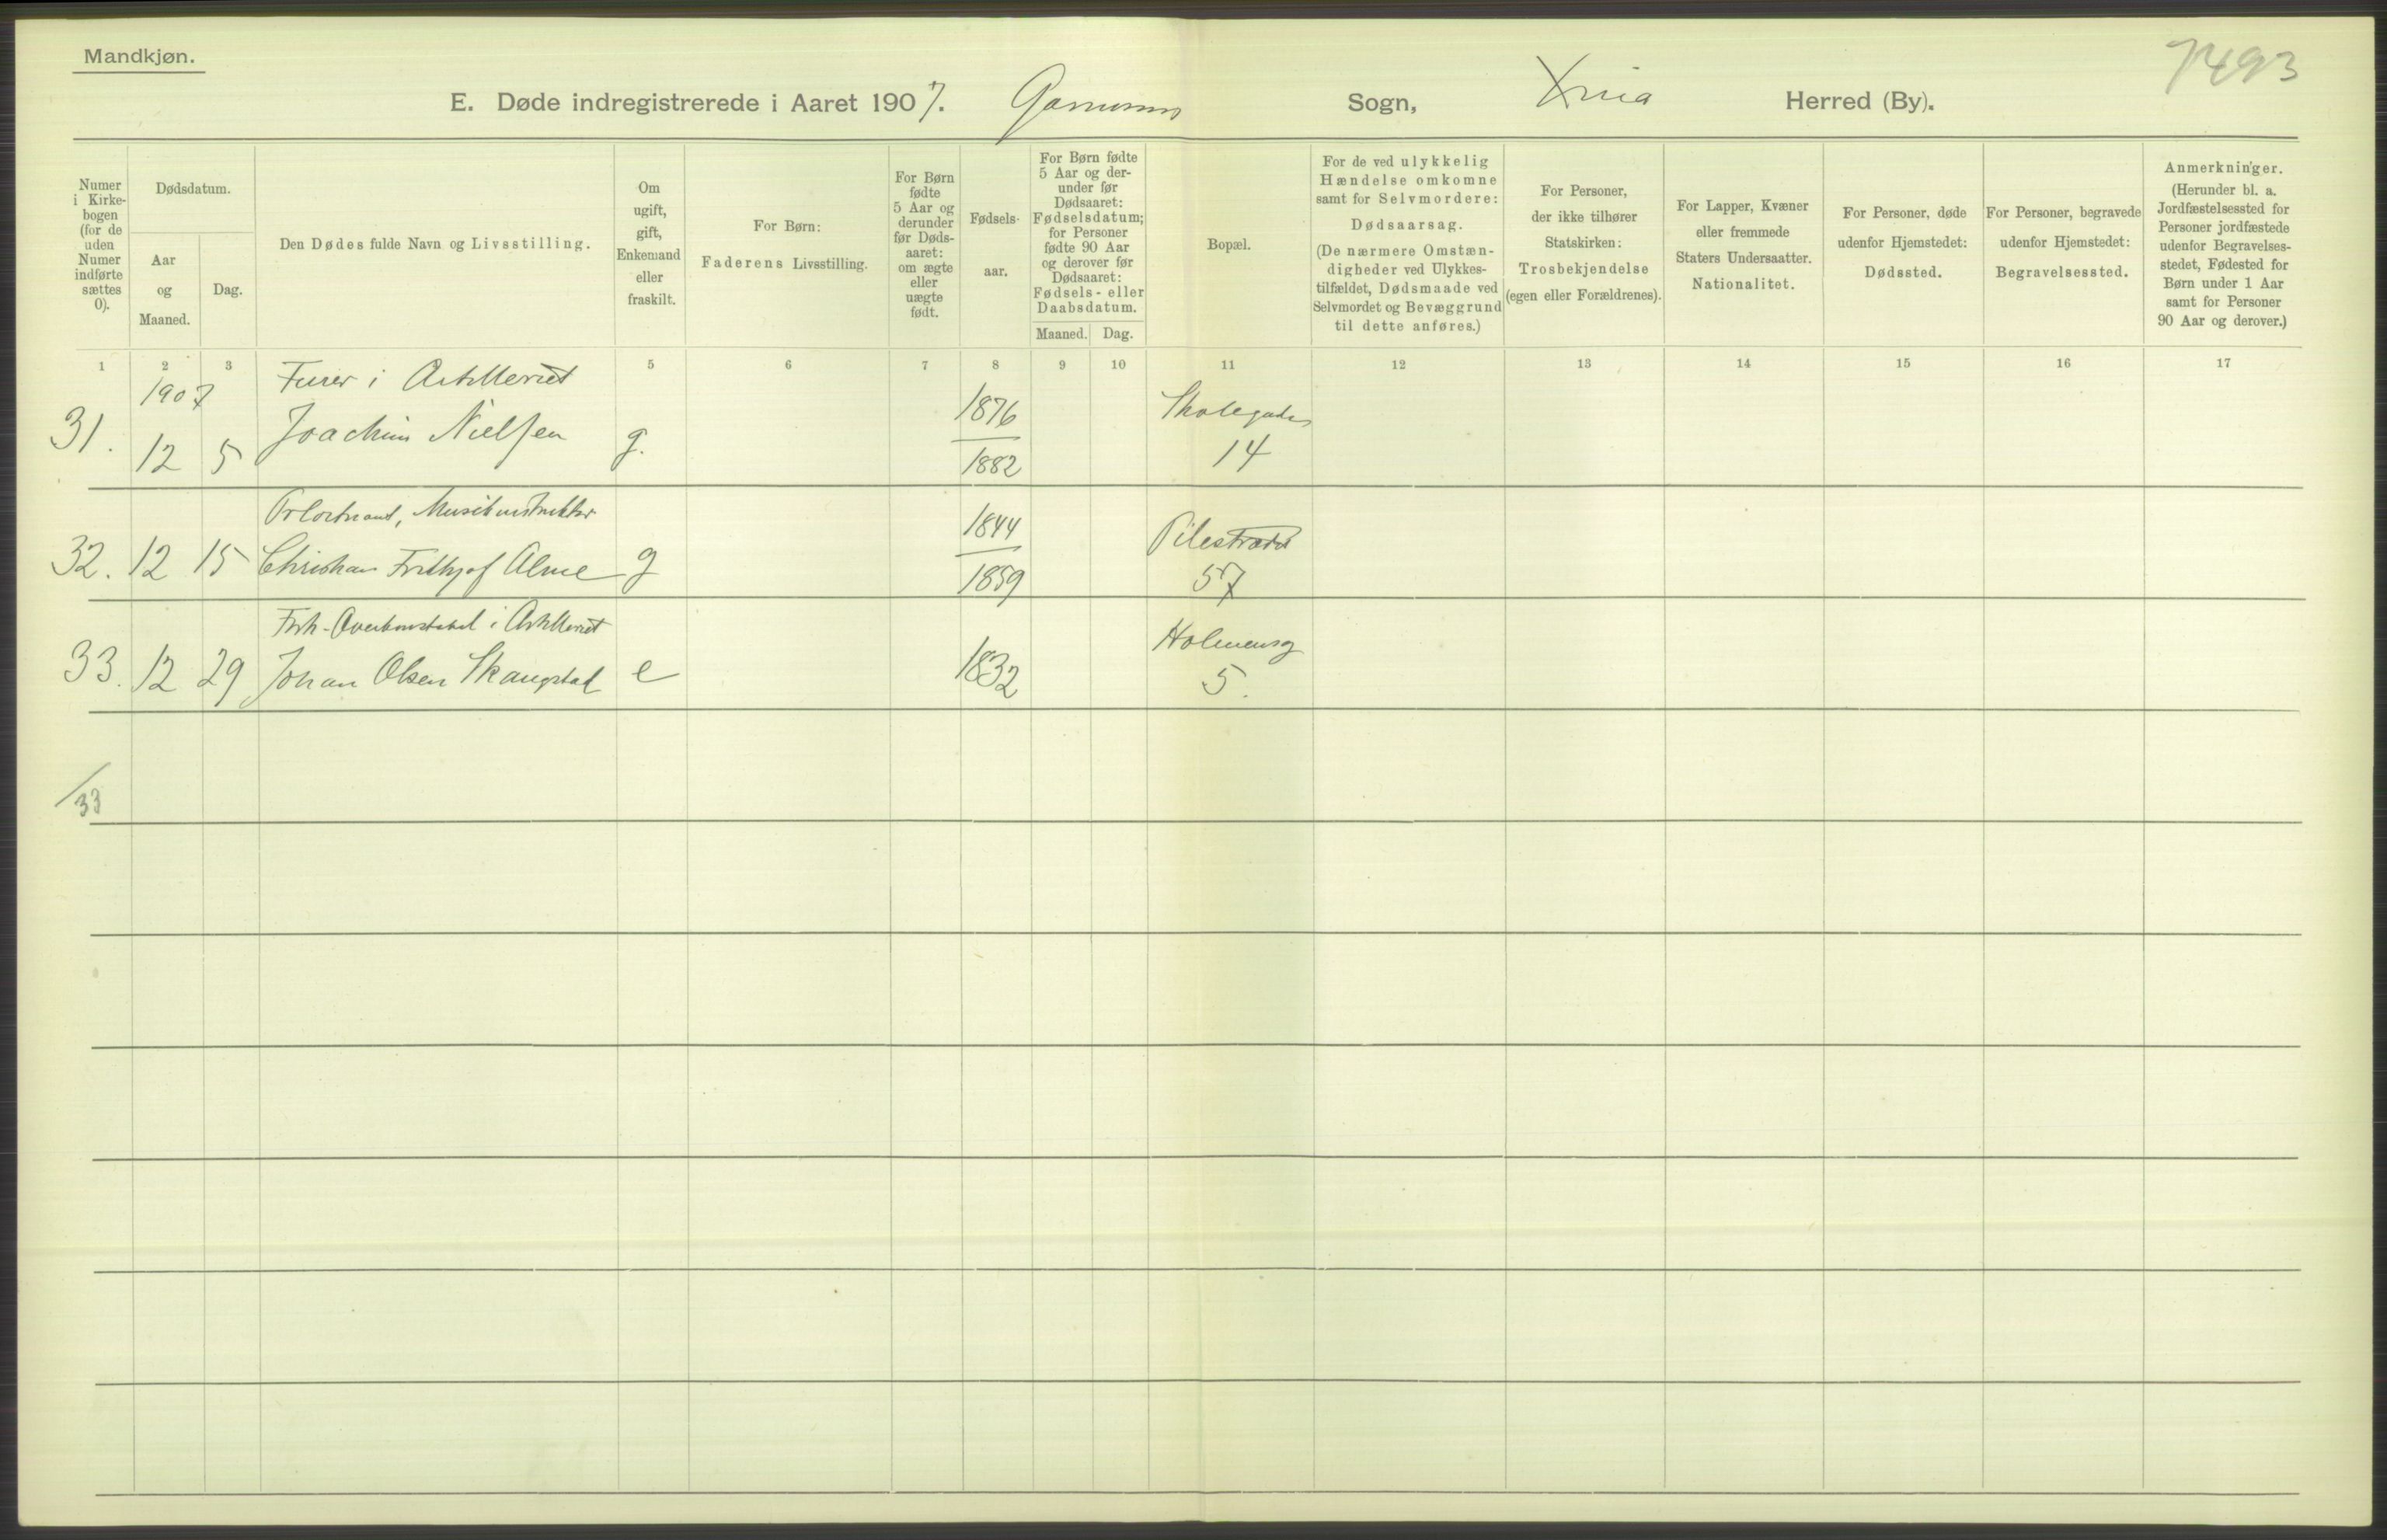 Mandkjøn.
7493
E. Døde indregistrerede i Aaret 1907. Garnisons Sogn, Xnia Herred (By).
Numer
i Kirke-
bogen
(for de
uden
Numer
indførte
sættes
0).
Dødsdatum.
Aar
og
Maaned.
Dag.
Den Dødes fulde Navn og Livsstilling.
Om
ugift,
gift,
Enkemand
eller
fraskilt.
For Børn:
Faderens Livsstilling.
For Børn
fødte
5 Aar og
derunder
før Døds-
aaret:
om ægte
eller
uægte
født.
Fødsels-
aar.
For Børn fødte
5 Aar og der-
under før
Dødsaaret:
Fødselsdatum;
for Personer
fødte 90 Aar
og derover før
Dødsaaret:
Fødsels- eller
Daabsdatum.
Maaned. Dag.
Bopæl.
For de ved ulykkelig
Hændelse omkomne
samt for Selvmordere:
Dødsaarsag.
(De nærmere Omstæn-
digheder ved Ulykkes-
tilfældet, Dødsmaade ved
Selvmordet og Bevæggrund
til dette anføres.)
For Personer,
der ikke tilhører
Statskirken:
Trosbekjendelse
(egen eller Forældrenes).
For Lapper, Kvæner
eller fremmede
Staters Undersaatter.
Nationalitet.
For Personer, døde
udenfor Hjemstedet:
Dødssted.
For Personer, begravede
udenfor Hjemstedet:
Begravelsessted.
Anmerkninger.
(Herunder bl. a.
Jordfæstelsessted for
Personer jordfæstede
udenfor Begravelses-
stedet, Fødested for
Børn under 1 Aar
samt for Personer
90 Aar og derover.)
1 2 3 5 6 7 8 9 10 11 12 13 14 15 16 17
1907 Furer i Artilleriet 1876 Skolegaden
31. 12 5 Joachim Nielsen g. 1882 14
Prloitnant, Musikinstruktør 1844 Pilestrædet
32. 12 15 Christian Frithjof Alme g 1859 57
Frh. Overkonstabel i Artilleriet Holmensg
33. 12 29 Johan Olsen Skaugstad e 1832 5.
/33